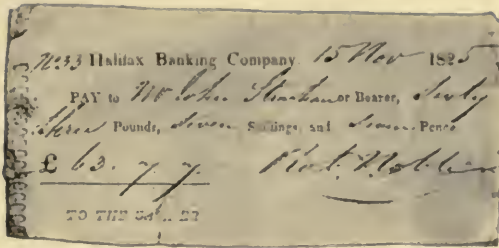 No 33 Halifax Banking Company. 15 Nov 1825
PAY to Mr John or Bearer, Sixty
three Pounds, Seven Shillings, and Seven Pence
£ 63. 7. 7.
TO THE CASHIER